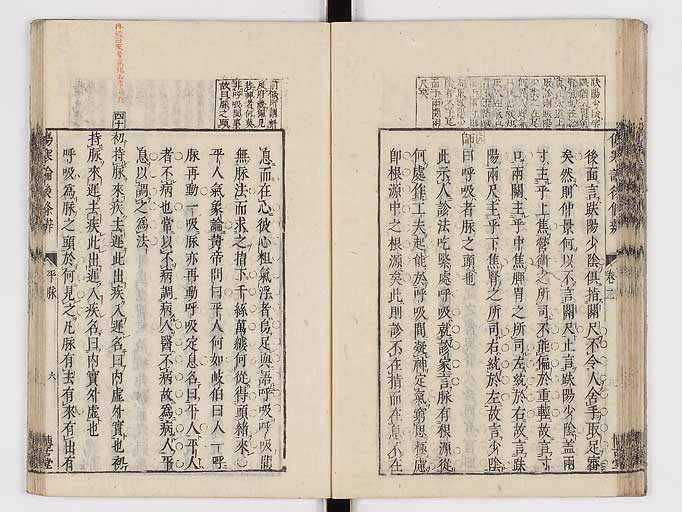 後面言趺陽少陰俱指關尺不令人舍手取足審
矣然則仲景何以不言關尺止言趺陽少陰蓋兩
寸主乎上焦營衛之所司不能偏於重輕故言寸
口兩關主乎中焦脾胃之所司左統於右故言趺
陽兩尺主乎下焦腎之所司右統於左故言少陰
師曰呼吸者脉之頭也
此示人診法吃緊處呼吸就診家言脉有根源從
何處作工夫起能於呼吸間凝神定氣窮思極慮
卽根源中之根源矣此則診不在指而在息不在
息而在心彼心粗氣浮者烏足與語呼吸呼吸間
無脉法而求之指下千絲萬縷何從得頭緒來
平人氣象論黄帝問曰平人何如岐伯曰人一呼
脉再動一吸脉亦再動呼吸定息名曰平人平人
者不病也常以不病調病人醫不病故爲病人平
息以調之爲法
四十初持脉來疾去遲此出疾入遲名曰内虛外實也初
持脉來遲去疾此出遲入疾名曰内實外虛也
呼吸爲脉之頭於何見之凡脉有去有來有出有
傷寒論後條辨
平脉
六
卷二